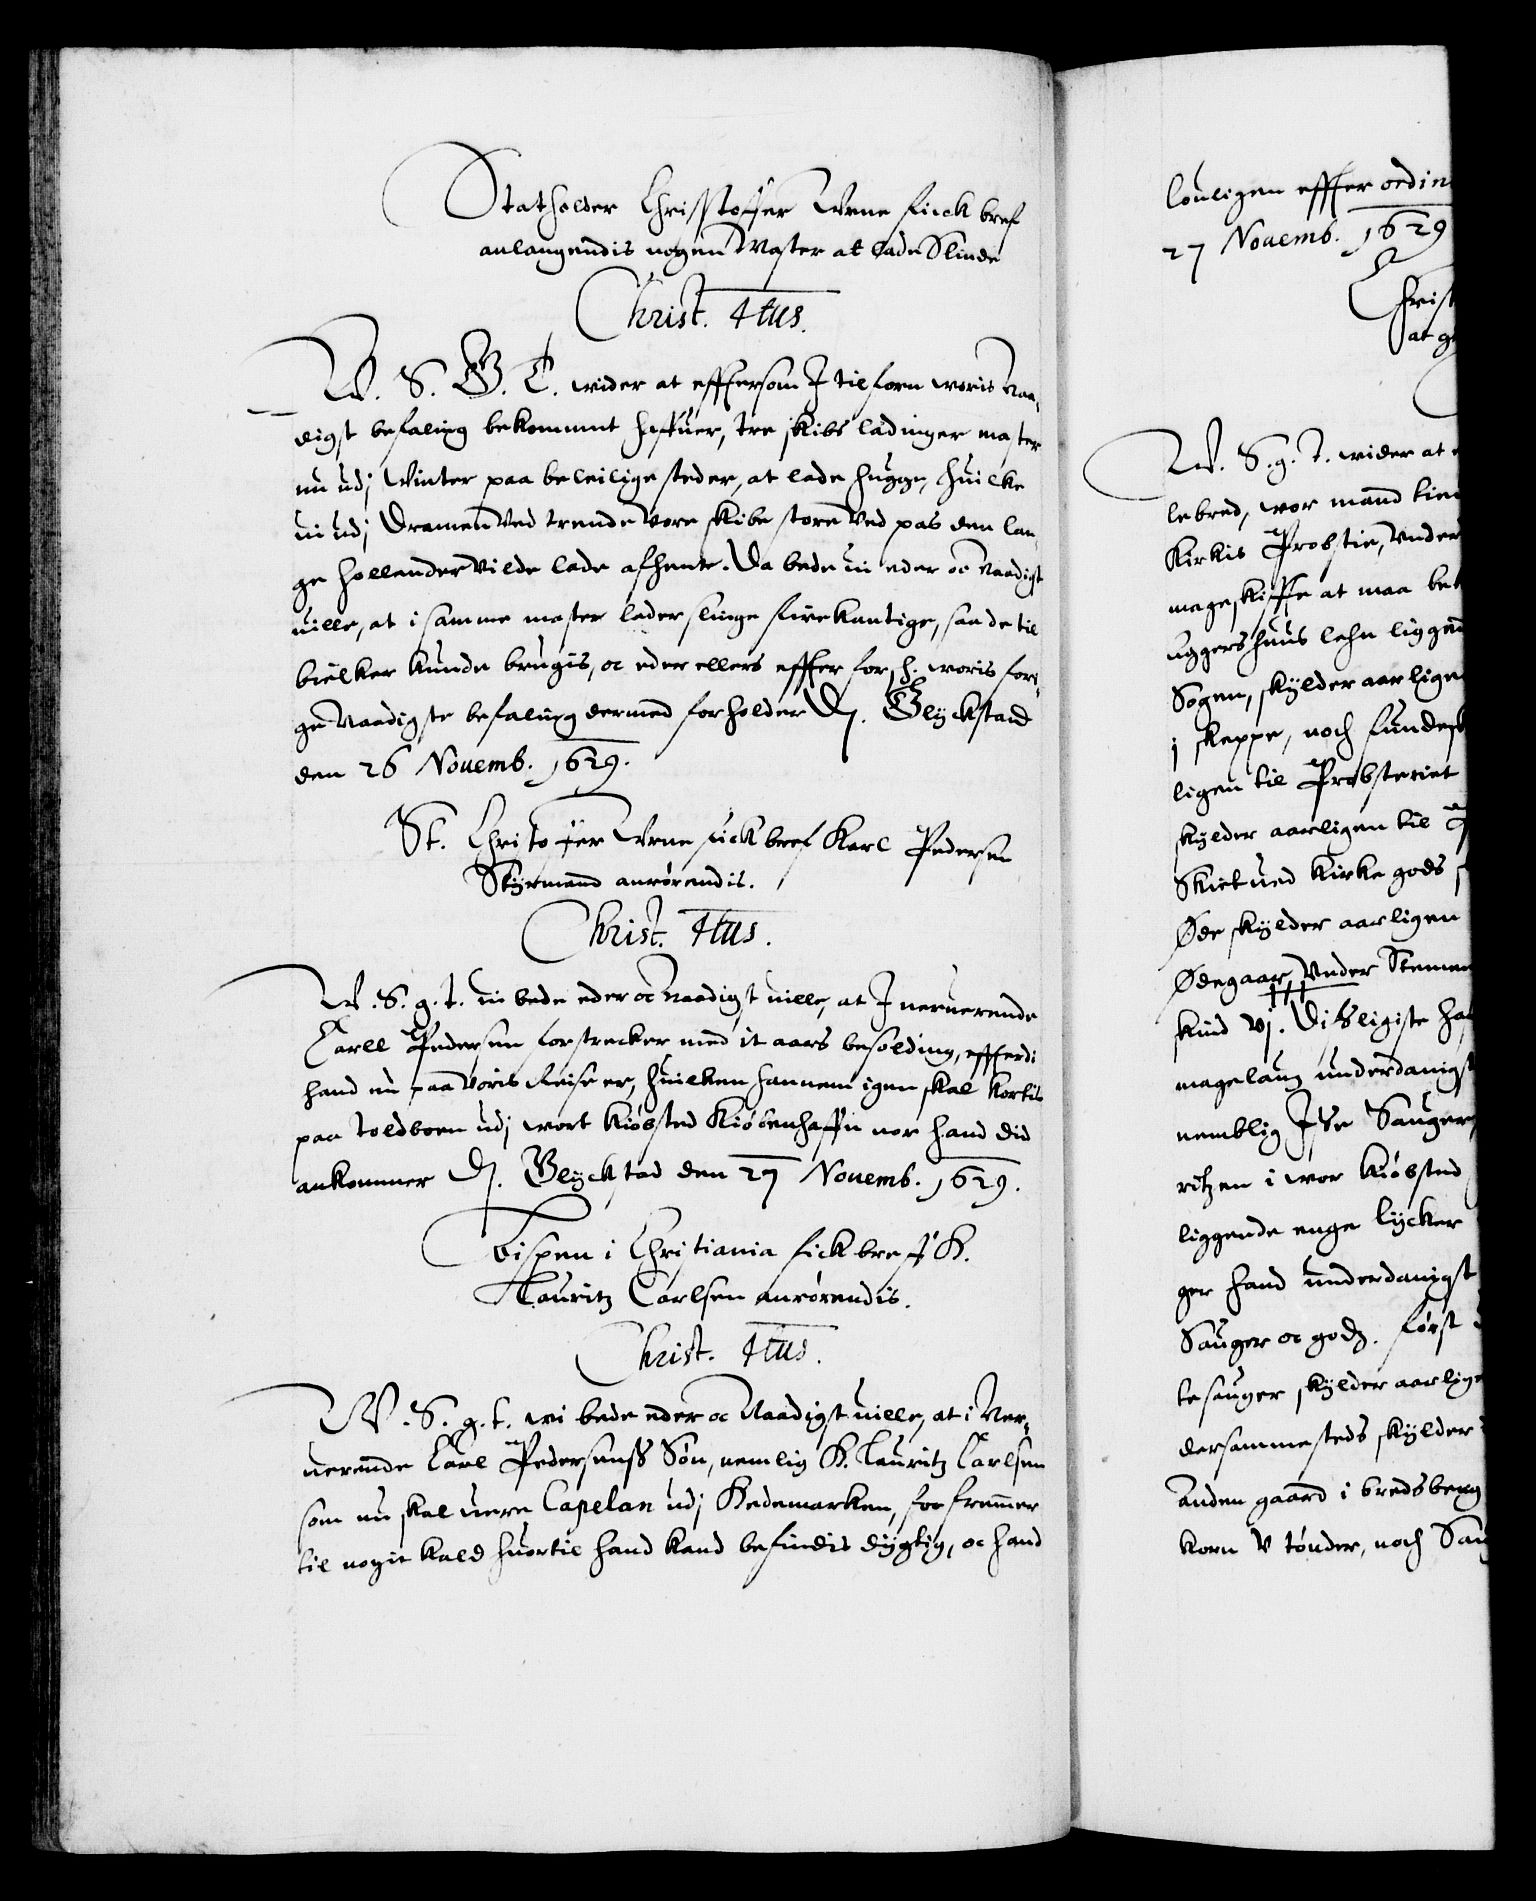 Statholder Christoffer Vrne fick bref
anlangendis nogen Master at lade Slinde
Christ. 4tus.
W. S. G. T. wider at effersom I tilforn woris Naa-
digst befaling bekommit haffuer, tre skibs ladinger master
nu udj Winter paa beleilige steder, at lade hugge, huilke
ui udj Dramen Ved trende Vore skibe store Ved pas den lan-
ge hollender Vilde lade afhente. Da bede ui eder oc Naadigst
uille, at i samme master lader slinge firekantige, saa de til
bielker kunde brugis, oc eder ellers effter forsch. woris fori-
ge Naadigste befaling dermed forholder Dj. Glyckstad
den 26 Nouemb. 1629.
St. Christoffer Vrne fick bref Karl Pedersen
Styrmand anrørendis.
Christ. 4tus.
W. S. g. t. ui bede eder oc Naadigst uille, at I neruerende
Carll Pedersen forstrecker med it aars besolding, efftterdi
hand nu paa Voris Reise er, huilken hannem igen skal kortis
paa toldboen udj wort kiøbsted Kiøbenhaffn nor hand did
ankommer Dj. Glyckstad den 27 Nouemb. 1629.
Bispen i Christiania fick breff H.
Lauritz Carlsen anrørendis.
Christ. 4tus.
W. S. g. t. wi bede eder oc Naadigst uille, at i Ner-
uerende Carl Pedersens Søn, nemlig H. Lauritz Carlsen
som nu skal uere Capelan udj Hedemarken, forfremmer
til nogit kald huortil hand kand befindis dygtig, oc hand
louligen effter ordin
27 Nouemb. 1629
Christ
at g
W. S. g. t. wider at
lebred, wor mand tien
Kirkis Probstie, Vnder
mageskiffte at maa be
Aggershuus lehn liggend
Sogen, skylder aarligen
j skeppe, noch
ligen til Probsteriet
skylder aarligen til
Skietued Kirke gods
Øde skylder aarligen
Ødegaar, Vnder
skind vj. Disligiste ha
magelaug underdanigst
nemblig Sauger
ritzen i wor kiøbsted
liggende enge lycker
ger hand underdanigst
Sauger oc gods. først
te sauger skylder aarlige
dersammesteds skylder
Anden gaard i bredsberg
korn V tønder, noch Sau